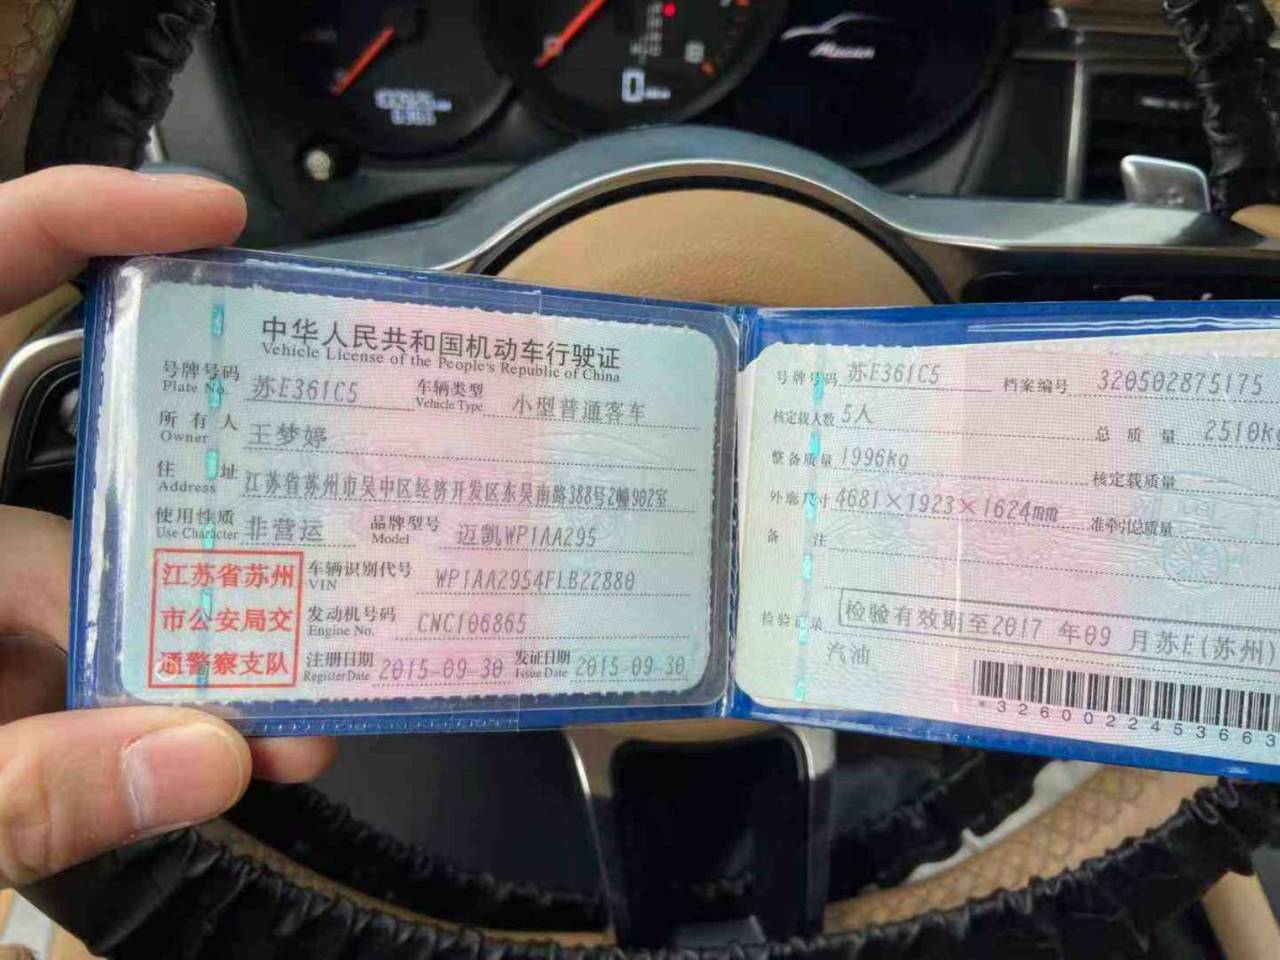 中华人民共和国机动车行驶证
Vehicle License of the People's Republic of China
号牌号码 苏E361C5 车辆类型 小型普通客车
Plate No. Vehicle Type
所有人 王梦婷
Owner
住址 江苏省苏州市吴中区经济开发区东吴南路388号2幢902室
Address
使用性质 非营运 品牌型号 迈凯WP1AA295
Use Character Model
江苏省苏州
市公安局交
通警察支队
车辆识别代号 WP1AA2954FLB22880
VIN
发动机号码 CNC106865
Engine No.
注册日期 2015-09-30 发证日期 2015-09-30
Register Date Issue Date
号牌号码 苏E361C5 档案编号 320502875175
核定载人数 5人 总质量 2510kg
整备质量 1996kg 核定载质量 —
外廓尺寸 4681×1923×1624mm 准牵引总质量 —
备注
检验记录 检验有效期至2017年09月苏E(苏州)
汽油
*3260022453663